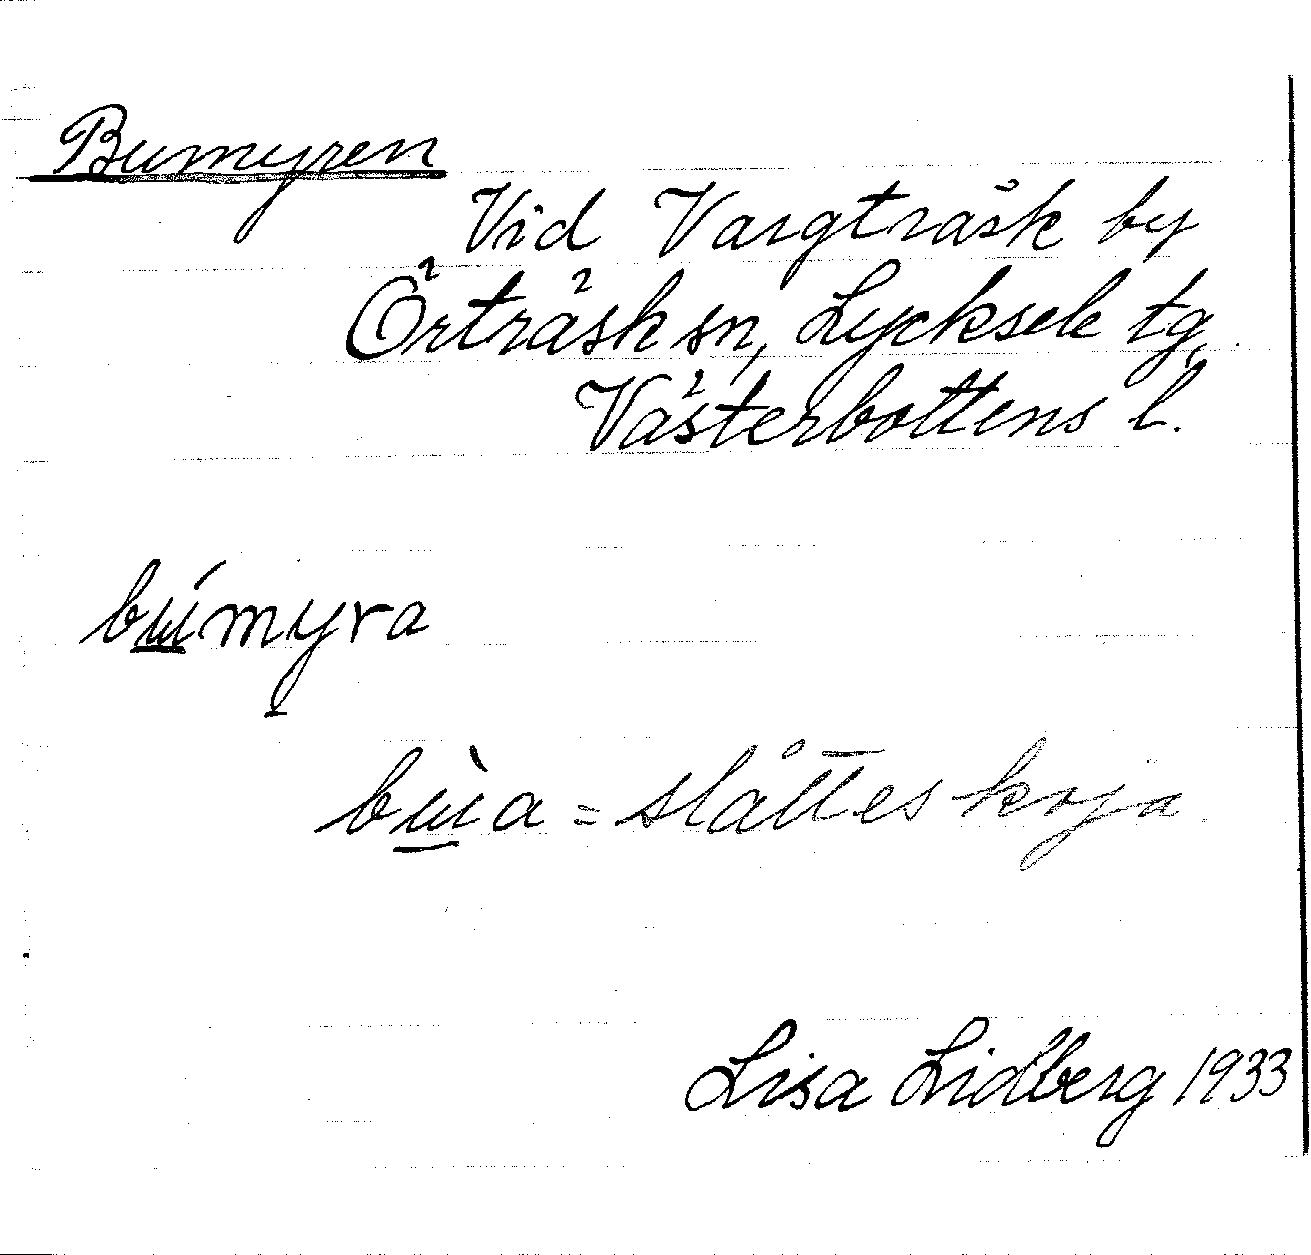 Bumyren
Vid Vargträsk by
Örträsk sn, Lycksele tg,
Västerbottens l.
bú̲my̲ra
bù̲a = slåtteskoja
Lisa Lidberg 1933